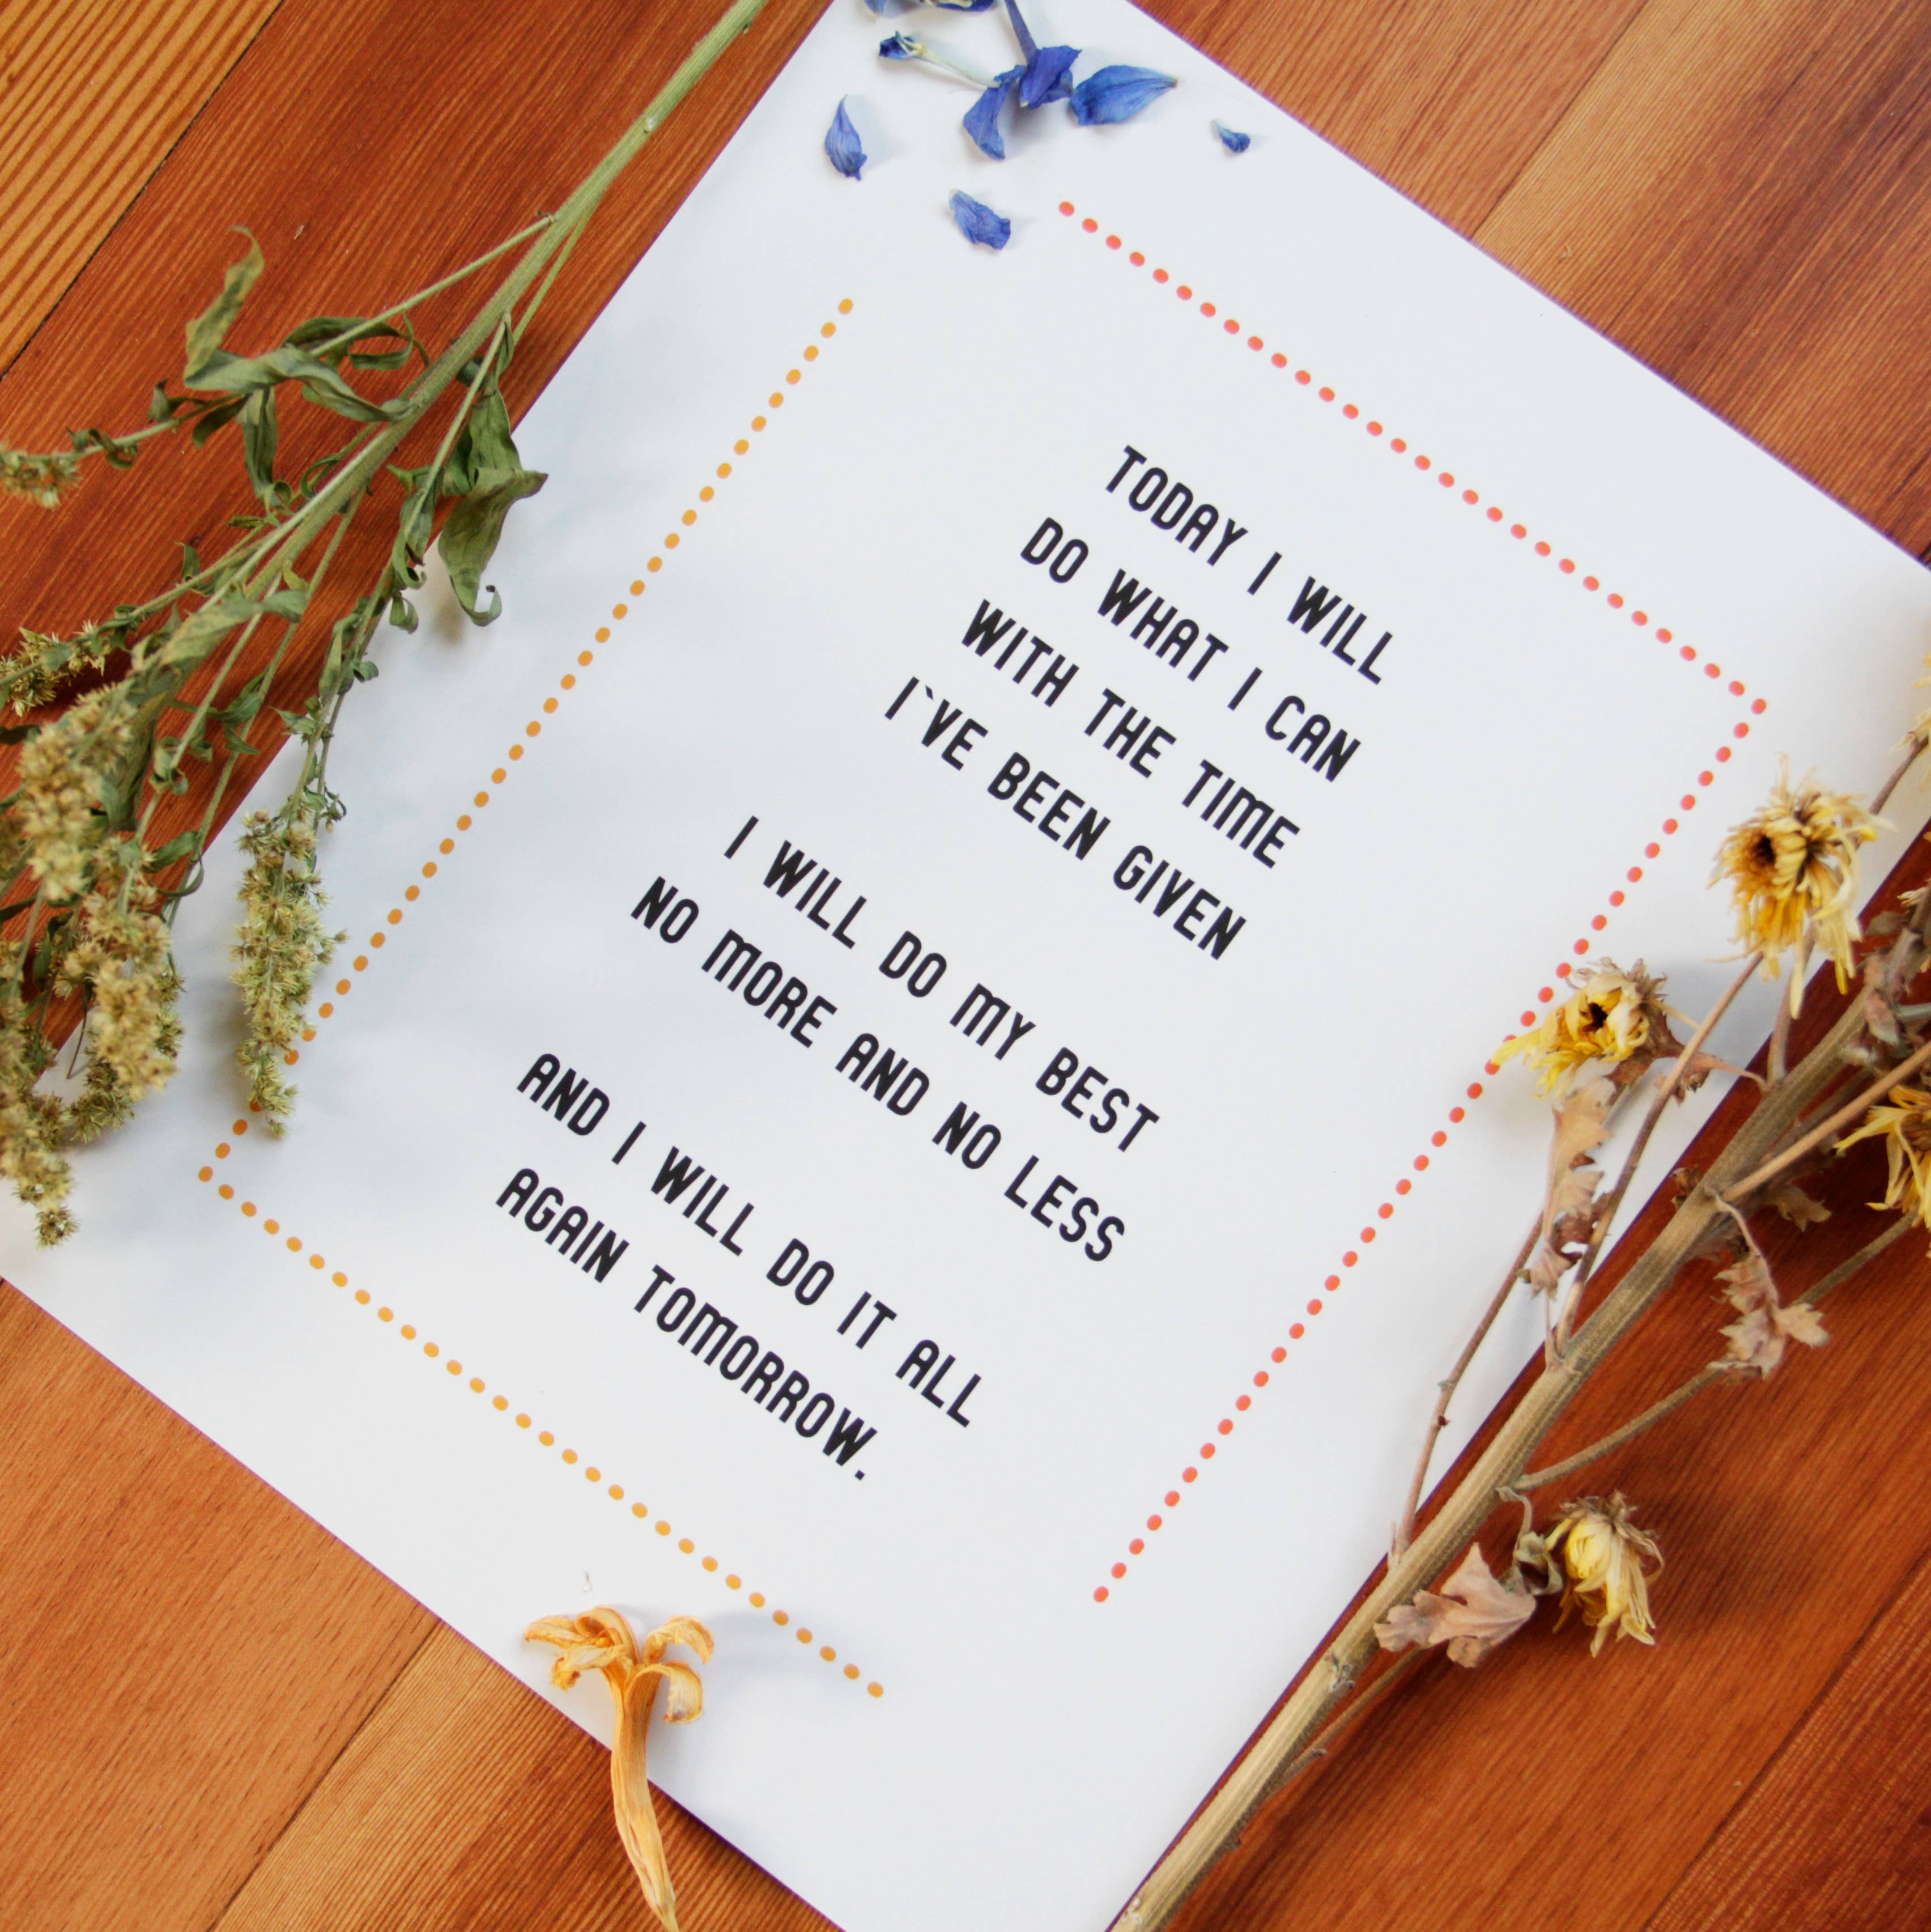 TODAY I WILL
DO WHAT I CAN
WITH THE TIME
I`VE BEEN GIVEN
I WILL DO MY BEST
NO MORE AND NO LESS
AND I WILL DO IT ALL
AGAIN TOMORROW.